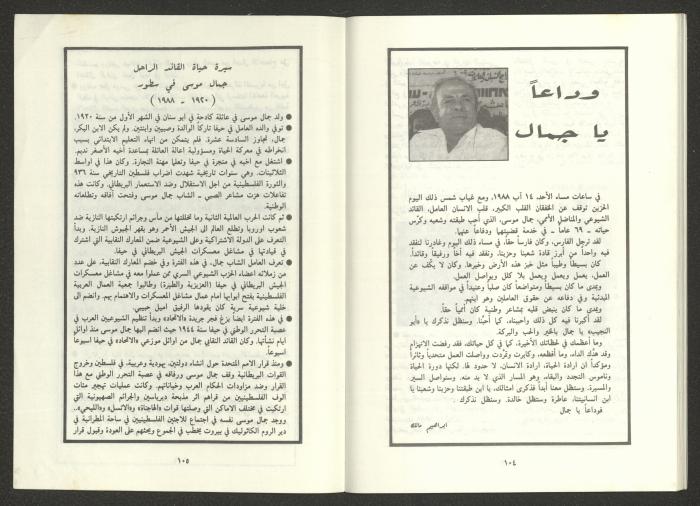 وداعاً
يا جمال
في ساعات مساء الأحد، ١٤ آب ١٩٨٨، ومع غياب شمس ذلك اليوم
الحزين توقف عن الخفقان القلب الكبير، قلب الانسان العامل، القائد
الشيوعي والمناضل الأممي، جمال موسى، الذي أحب طبقته وشعبه وكرّس
حياته ـ ٦٩ عاما ـ في خدمة قضيتها ودفاعاً عنها.
لقد ترجل الفارس، وكان فارساً حقاً، في مساء ذلك اليوم وغادرنا لنفقد
فيه واحداً من أبرز قادة شعبنا وحزبنا، ونفقد فيه أخاً ورفيقاً وقائداً.
كان بسيطاً وطيباً مثل خبز هذه الأرض وخيرها. وكان لا يكف عن
العمل، يعمل ويعمل ويعمل بلا كلل ويواصل العمل.
وبمدى ما كان بسيطاً ومتواضعاً كان صلباً وعنيداً في مواقفه الشيوعية
المبدئية وفي دفاعه عن حقوق العاملين وهو إبنهم.
وبمدى ما كان ينبض قلبه بمشاعر وطنية كان أممياً حقاً.
لقد أكبرنا فيه كل ذلك واحببناه، كما أحبنا. وسنظل نذكرك يا «أبو
النجيب» يا جمال بالخير والحب والبركة.
وما أعظمك في لحظاتك الأخيرة، كما في كل حياتك، فقد رفضت الانهزام
وقد هدّك الداء، وما أفظعه، وكابرت وقررت وواصلت العمل متحدياً وثائراً
ومؤكداً ان ارادة الحياة، ارادة الانسان، لا حدود لها. لكنها دورة الحياة
وناموس التجدد والبقاء، وهو المسار الذي لا بد منه. وسنواصل السير
والمسيرة. وستظل معنا أبداً فذكرى امثالك، يا ابن طبقتنا وحزبنا وشعبنا يا
ابن انسانيتنا، عاطرة وستظل خالدة. وسنظل نذكرك .
فوداعاً يا جمال
ابراهيم مالك
١٠٤
سيرة حياة القائد الراحل
جمال موسى في سطور
(١٩٢٠ ـ ١٩٨٨)
● ولد جمال موسى في عائلة كادحة في أبو سنان في الشهر الأول من سنة ١٩٢٠.
● توفي والده العامل في حيفا تاركاً الوالدة وصبيين وابنتين. ولم يكن الابن البكر،
جمال، تجاوز السادسة عشرة. فلم يتمكن من انهاء التعليم الابتدائي بسبب
انخراطه في معركة الحياة ومسؤولية اعالة العائلة بمساعدة أخيه الأصغر نديم.
● اشتغل مع أخيه في منجرة في حيفا وتعلما مهنة النجارة. وكان هذا في اواسط
الثلاثينات. وهي سنوات تاريخية شهدت اضراب فلسطين التاريخي سنة ٩٣٦
والثورة الفلسطينية من اجل الاستقلال وضد الاستعمار البريطاني. وكانت هذه
تفاعلات هزت مشاعر الصبي ـ الشاب جمال موسى وفتحت آفاقه وتطلعاته
الوطنية.
● ثم كانت الحرب العالمية الثانية وما تخللتها من مآس وجرائم ارتكبتها النازية ضد
شعوب اوروبا وتطلع العالم الى الجيش الأحمر وهو يقهر الجيوش النازية. وبدأ
التعرف على الدولة الاشتراكية وعلى الشيوعية ضمن المعارك النقابية التي اشترك
في قيادتها في مشاغل معسكرات الجيش البريطاني في حيفا.
● تعرف العامل الشاب جمال، في هذه الفترة وفي خضم المعارك النقابية، على عدد
من زملائه اعضاء الحزب الشيوعي السري ممن عملوا معه في مشاغل معسكرات
الجيش البريطاني في حيفا (العزيزية والطيرة) وطالبوا جمعية العمال العربية
الفلسطينية بفتح ابوابها امام عمال مشاغل المعسكرات والاهتمام بهم. وانضم الى
خلية شيوعية سرية كان يقودها الرفيق اميل حبيبي.
● في هذه الفترة ايضاً بزغ فجر جريدة «الاتحاد» وبدأ تنظيم الشيوعيين العرب في
عصبة التحرر الوطني في حيفا سنة ١٩٤٤ حيث انضم اليها جمال موسى منذ اوائل
ايام نشأتها. وكان القائد النقابي جمال من اوائل موزعي «الاتحاد» في حيفا اسبوعاً
اسبوعاً.
● ومنذ قرار الامم المتحدة حول انشاء دولتين، يهودية وعربية، في فلسطين وخروج
القوات البريطانية وقف جمال موسى ورفاقه في عصبة التحرر الوطني مع هذا
القرار وضد مزاودات الحكام العرب وخياناتهم. وكانت عمليات تهجير مئات
الوف الفلسطينيين من قراهم اثر مذبحة ديرياسين والجرائم الصهيونية التي
ارتكبت في مختلف الاماكن التي وصلتها قوات «الهاجاناة» و«الاتسل» و«الليحي».
ووجد جمال موسى نفسه في اجتماع للاجئين الفلسطينيين في ساحة المطرانية في
دير الروم الكاثوليك في بيروت يخطب في الجموع ويحثهم على العودة وقبول قرار
١٠٥